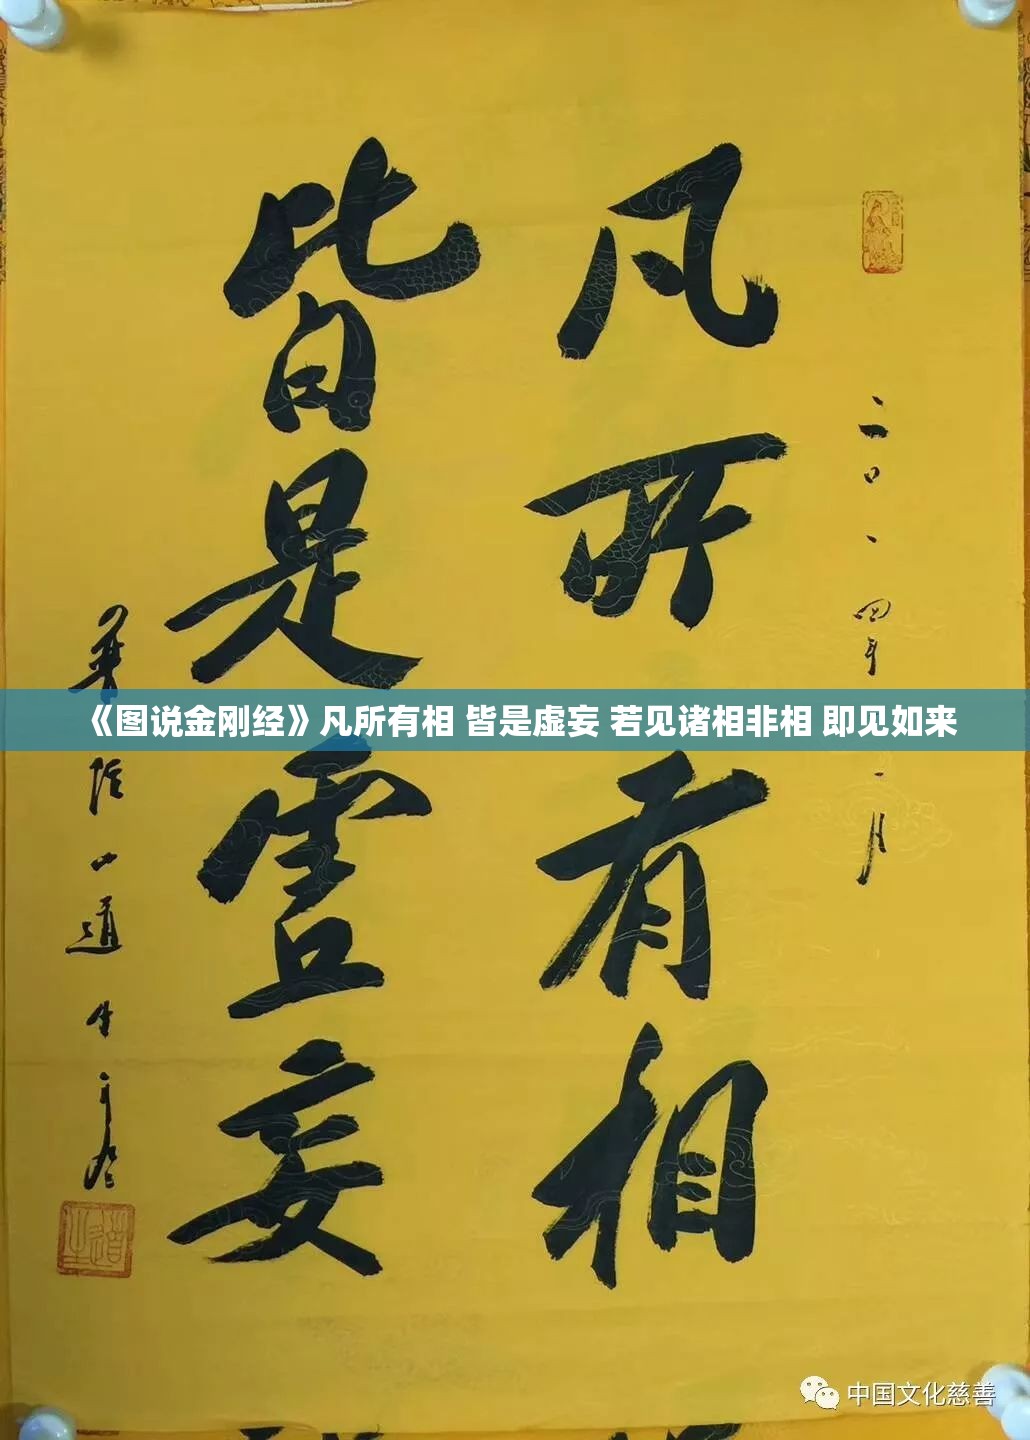 凡所有相
皆是虚妄
二〇一四年
一月
普陀山道生
《图说金刚经》凡所有相 皆是虚妄 若见诸相非相 即见如来
中国文化慈善